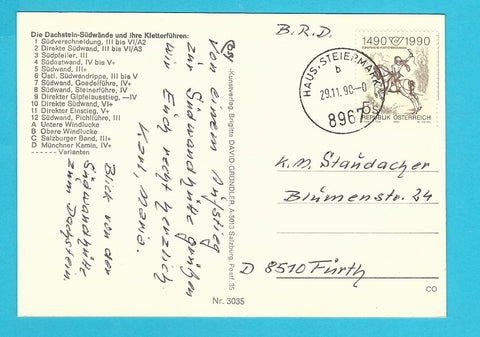 Die Dachstein-Südwände und ihre Kletterführen:
1 Südverschneidung, III bis VI/A2
2 Direkte Südwand, III bis VI/A3
3 Südpfeiler, III
4 Südostwand, IV bis V+
5 Südwand, III+
6 Östl. Südwandrippe, III bis V
7 Südwand, Goedelführe, IV+
8 Südwand, Steinerführe, IV
9 Direkter Gipfelausstieg, —IV
10 Direkte Südwand, VI+
11 Direkter Einstieg, V+
12 Südwand, Pichlführe, III
A Untere Windlucke
B Obere Windlucke
C Salzburger Band, III+
D Münchner Kamin, IV+
------ Varianten
Von einem Aufstieg
zur Südwandhütte grüßen
wir Euch recht herzlich
Karl, Maria.
Blick von der
Südwandhütte
zum Dachstein.
-Kunstverlag, Brigitte DAVID GRÜNDLER, A-5013 Salzburg, Postf. 35
Nr. 3035
B.R.D.
HAUS, STEIERMARK
b
29.11.90-0
8967
1490 1990
5s
REPUBLIK ÖSTERREICH
K.M. Staudacher
Blumenstr. 24
D 8510 Fürth
CO